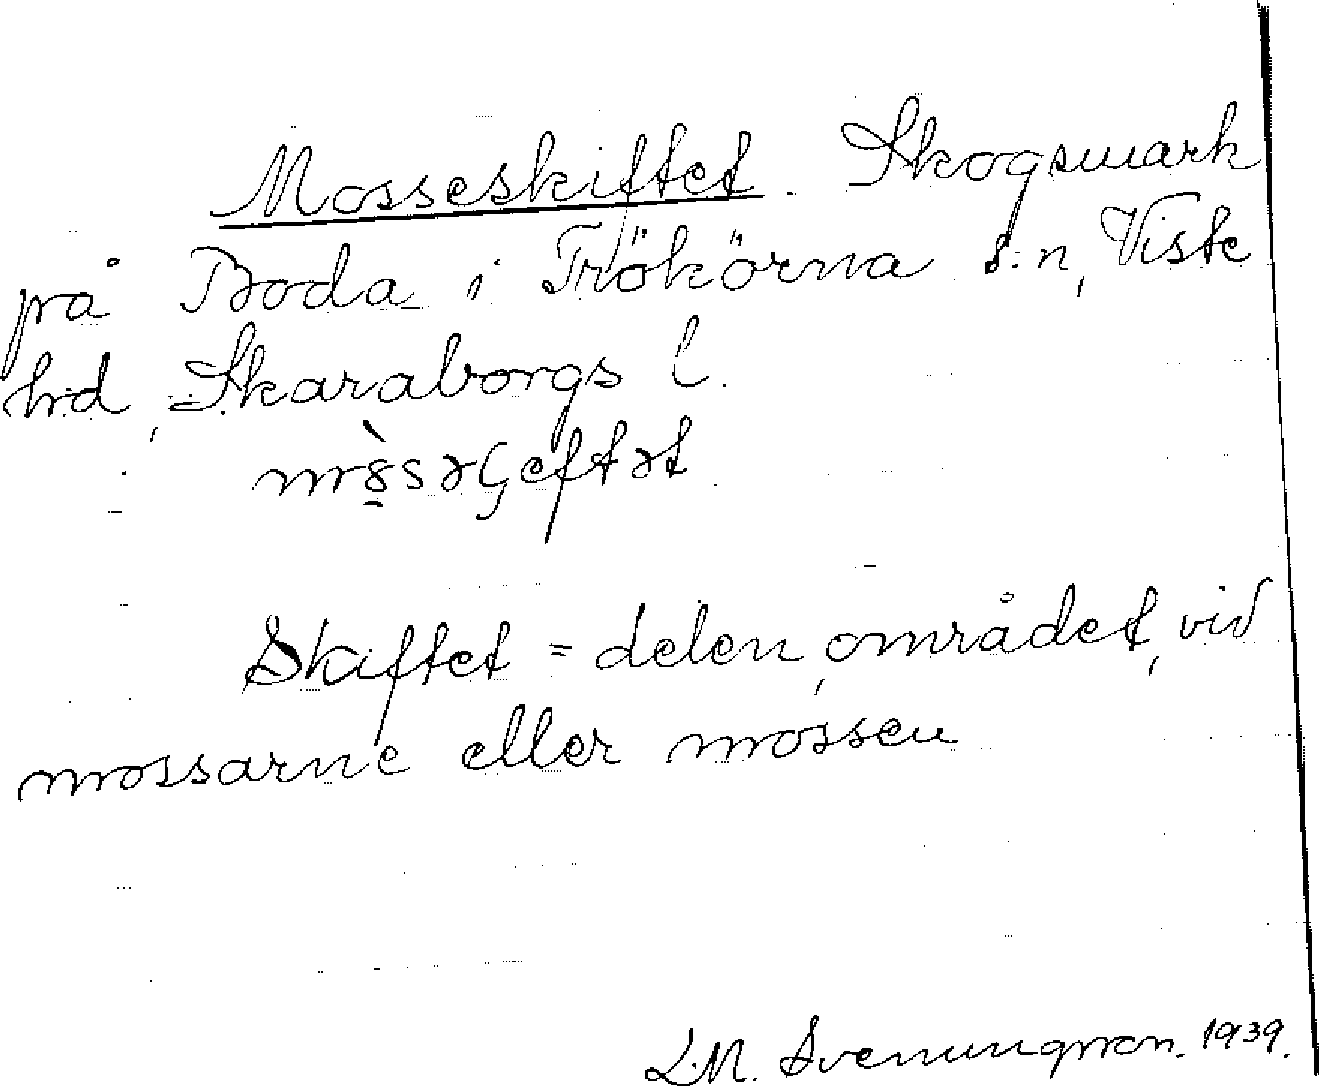 Mosseskiftet. Skogsmark
på Boda i Trökörna s:n, Viste
hd, Skaraborgs l.
Skiftet = delen, området, vid
mossarne eller mossen
L.M. Svenungsson. 1939.